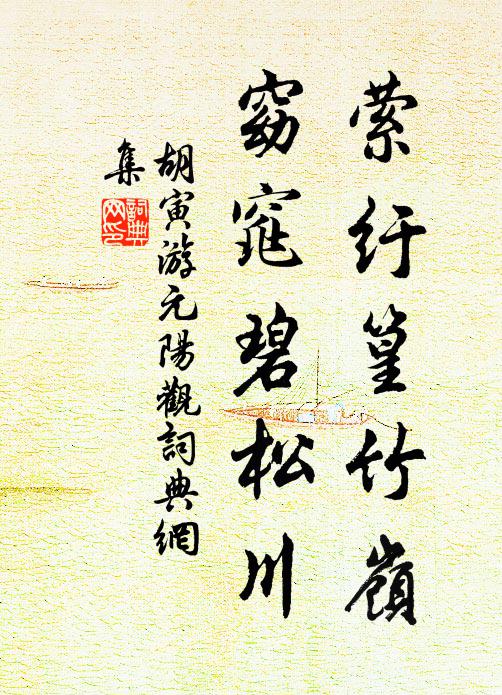 萦纡篁竹嶺
窈窕碧松川
胡寅游元陽觀詞典網
集
詞典
网印